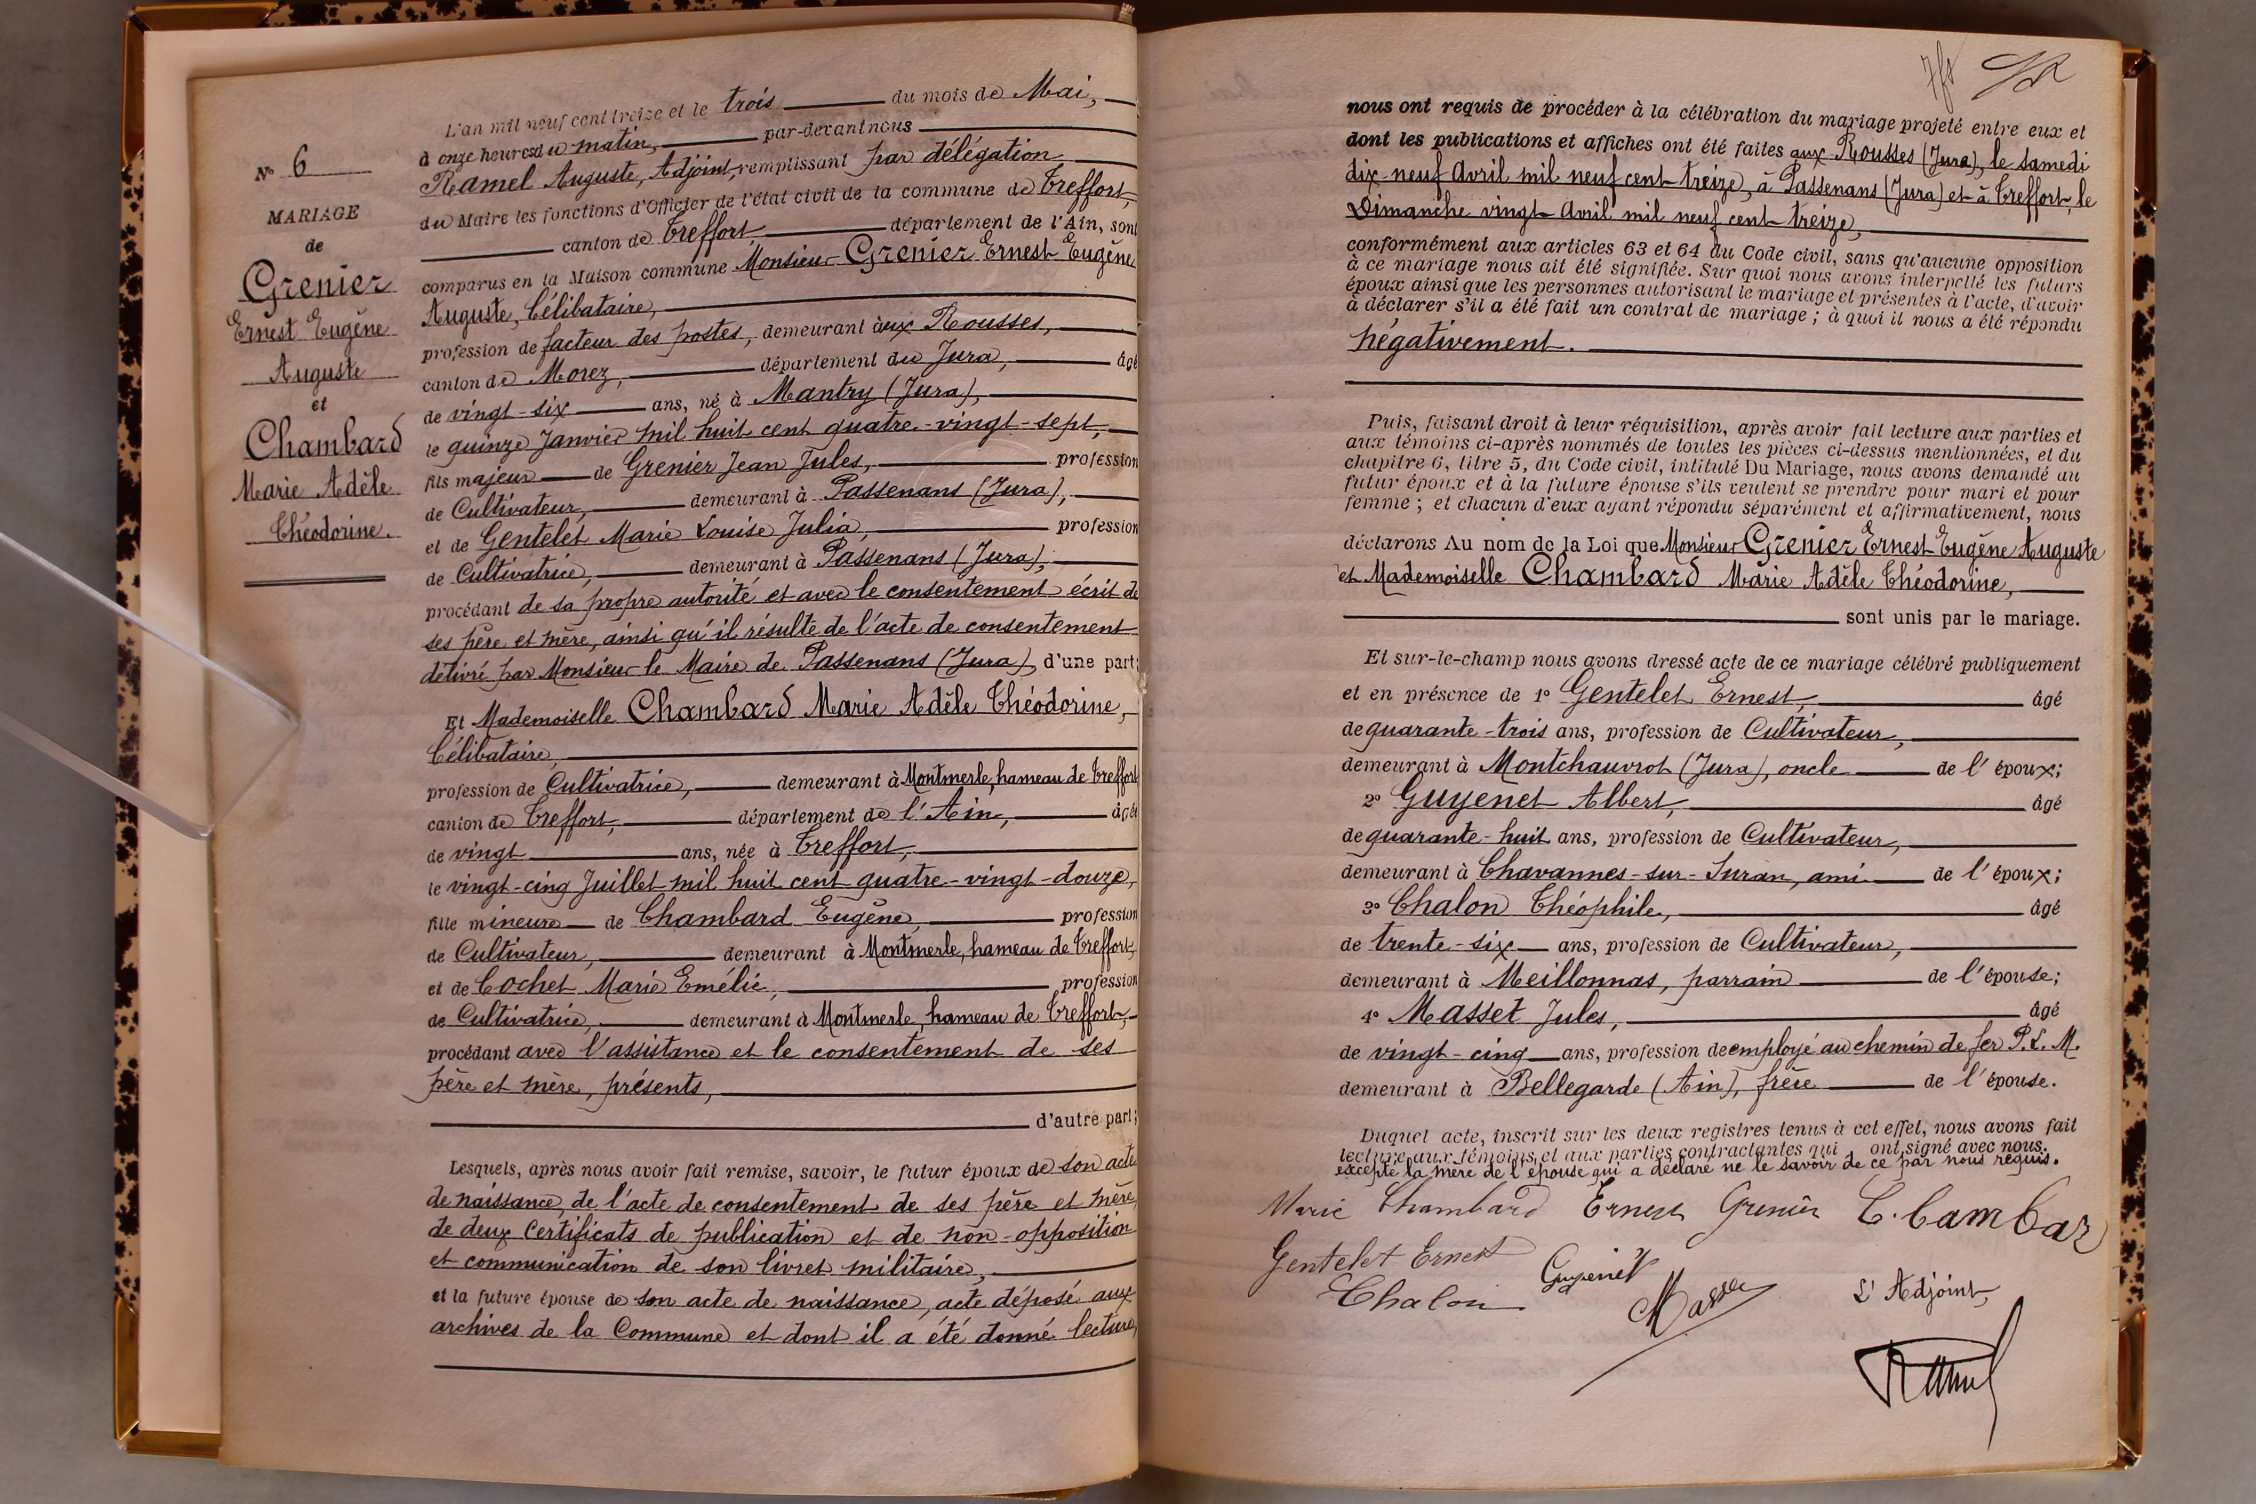 N° 6
MARIAGE
de
Grenier
Ernest Eugène
Auguste
et
Chambard
Marie Adèle
Théodorine.
L'an mil neuf cent treize et le trois du mois de Mai,
à onze heures du matin, par-devant nous
Ramel Auguste, Adjoint, remplissant par délégation
du Maire les fonctions d'Officier de l'état civil de la commune de Treffort,
canton de Treffort, département de l'Ain, sont
comparus en la Maison commune Monsieur Grenier Ernest Eugène
Auguste, Célibataire,
profession de facteur des postes, demeurant aux Rousses,
canton de Morez, département du Jura, âgé
de vingt-six ans, né à Mantry (Jura),
le quinze Janvier mil huit cent quatre-vingt-sept,
fils majeur de Grenier Jean Jules, profession
de Cultivateur, demeurant à Passenans (Jura),
et de Gentelet Marie Louise Julia, profession
de Cultivatrice, demeurant à Passenans (Jura),
procédant de sa propre autorité et avec le consentement écrit de
ses père et mère, ainsi qu'il résulte de l'acte de consentement
délivré par Monsieur le Maire de Passenans (Jura), d'une part;
Et Mademoiselle Chambard Marie Adèle Théodorine,
Célibataire,
profession de Cultivatrice, demeurant à Montmerle, hameau de Treffort
canton de Treffort, département de l'Ain, âgée
de vingt ans, née à Treffort,
le vingt-cinq Juillet mil huit cent quatre-vingt-douze,
fille mineure de Chambard Eugène, profession
de Cultivateur, demeurant à Montmerle, hameau de Treffort,
et de Cochet Marie Emélie, profession
de Cultivatrice, demeurant à Montmerle, hameau de Treffort,
procédant avec l'assistance et le consentement de ses
père et mère, présents,
d'autre part;
Lesquels, après nous avoir fait remise, savoir, le futur époux de son acte
de naissance, de l'acte de consentement de ses père et mère,
de deux certificats de publication et de non-opposition
et communication de son livret militaire,
et la future épouse de son acte de naissance, acte déposé aux
archives de la Commune et dont il a été donné lecture,
nous ont requis de procéder à la célébration du mariage projeté entre eux et
dont les publications et affiches ont été faites aux Rousses (Jura), le samedi
dix-neuf Avril mil neuf cent treize, à Passenans (Jura) et à Treffort, le
Dimanche vingt Avril mil neuf cent treize,
conformément aux articles 63 et 64 du Code civil, sans qu'aucune opposition
à ce mariage nous ait été signifiée. Sur quoi nous avons interpellé les futurs
époux ainsi que les personnes autorisant le mariage et présentes à l'acte, d'avoir
à déclarer s'il a été fait un contrat de mariage ; à quoi il nous a été répondu
négativement.
Puis, faisant droit à leur réquisition, après avoir fait lecture aux parties et
aux témoins ci-après nommés de toutes les pièces ci-dessus mentionnées, et du
chapitre 6, titre 5, du Code civil, intitulé Du Mariage, nous avons demandé au
futur époux et à la future épouse s'ils veulent se prendre pour mari et pour
femme ; et chacun d'eux ayant répondu séparément et affirmativement, nous
déclarons Au nom de la Loi que Monsieur Grenier Ernest Eugène Auguste
et Mademoiselle Chambard Marie Adèle Théodorine,
sont unis par le mariage.
Et sur-le-champ nous avons dressé acte de ce mariage célébré publiquement
et en présence de 1° Gentelet Ernest, âgé
de quarante-trois ans, profession de Cultivateur,
demeurant à Montchauvrot (Jura), oncle de l'époux;
2° Guyenet Albert, âgé
de quarante-huit ans, profession de Cultivateur,
demeurant à Chavannes-sur-Suran, ami de l'époux;
3° Chalon Théophile, âgé
de trente-six ans, profession de Cultivateur,
demeurant à Meillonnas, parrain de l'épouse;
4° Masset Jules, âgé
de vingt-cinq ans, profession de employé au chemin de fer P.L.M.
demeurant à Bellegarde (Ain), frère de l'épouse.
Duquel acte, inscrit sur les deux registres tenus à cet effet, nous avons fait
lecture aux témoins et aux parties contractantes qui ont signé avec nous.
excepté la mère de l'épouse qui a déclaré ne le savoir de ce par nous requis.
Marie Chambard Ernest Grenier C. Cambar
Gentelet Ernest Guyenet
Chalon Masset L'Adjoint,
Ramel